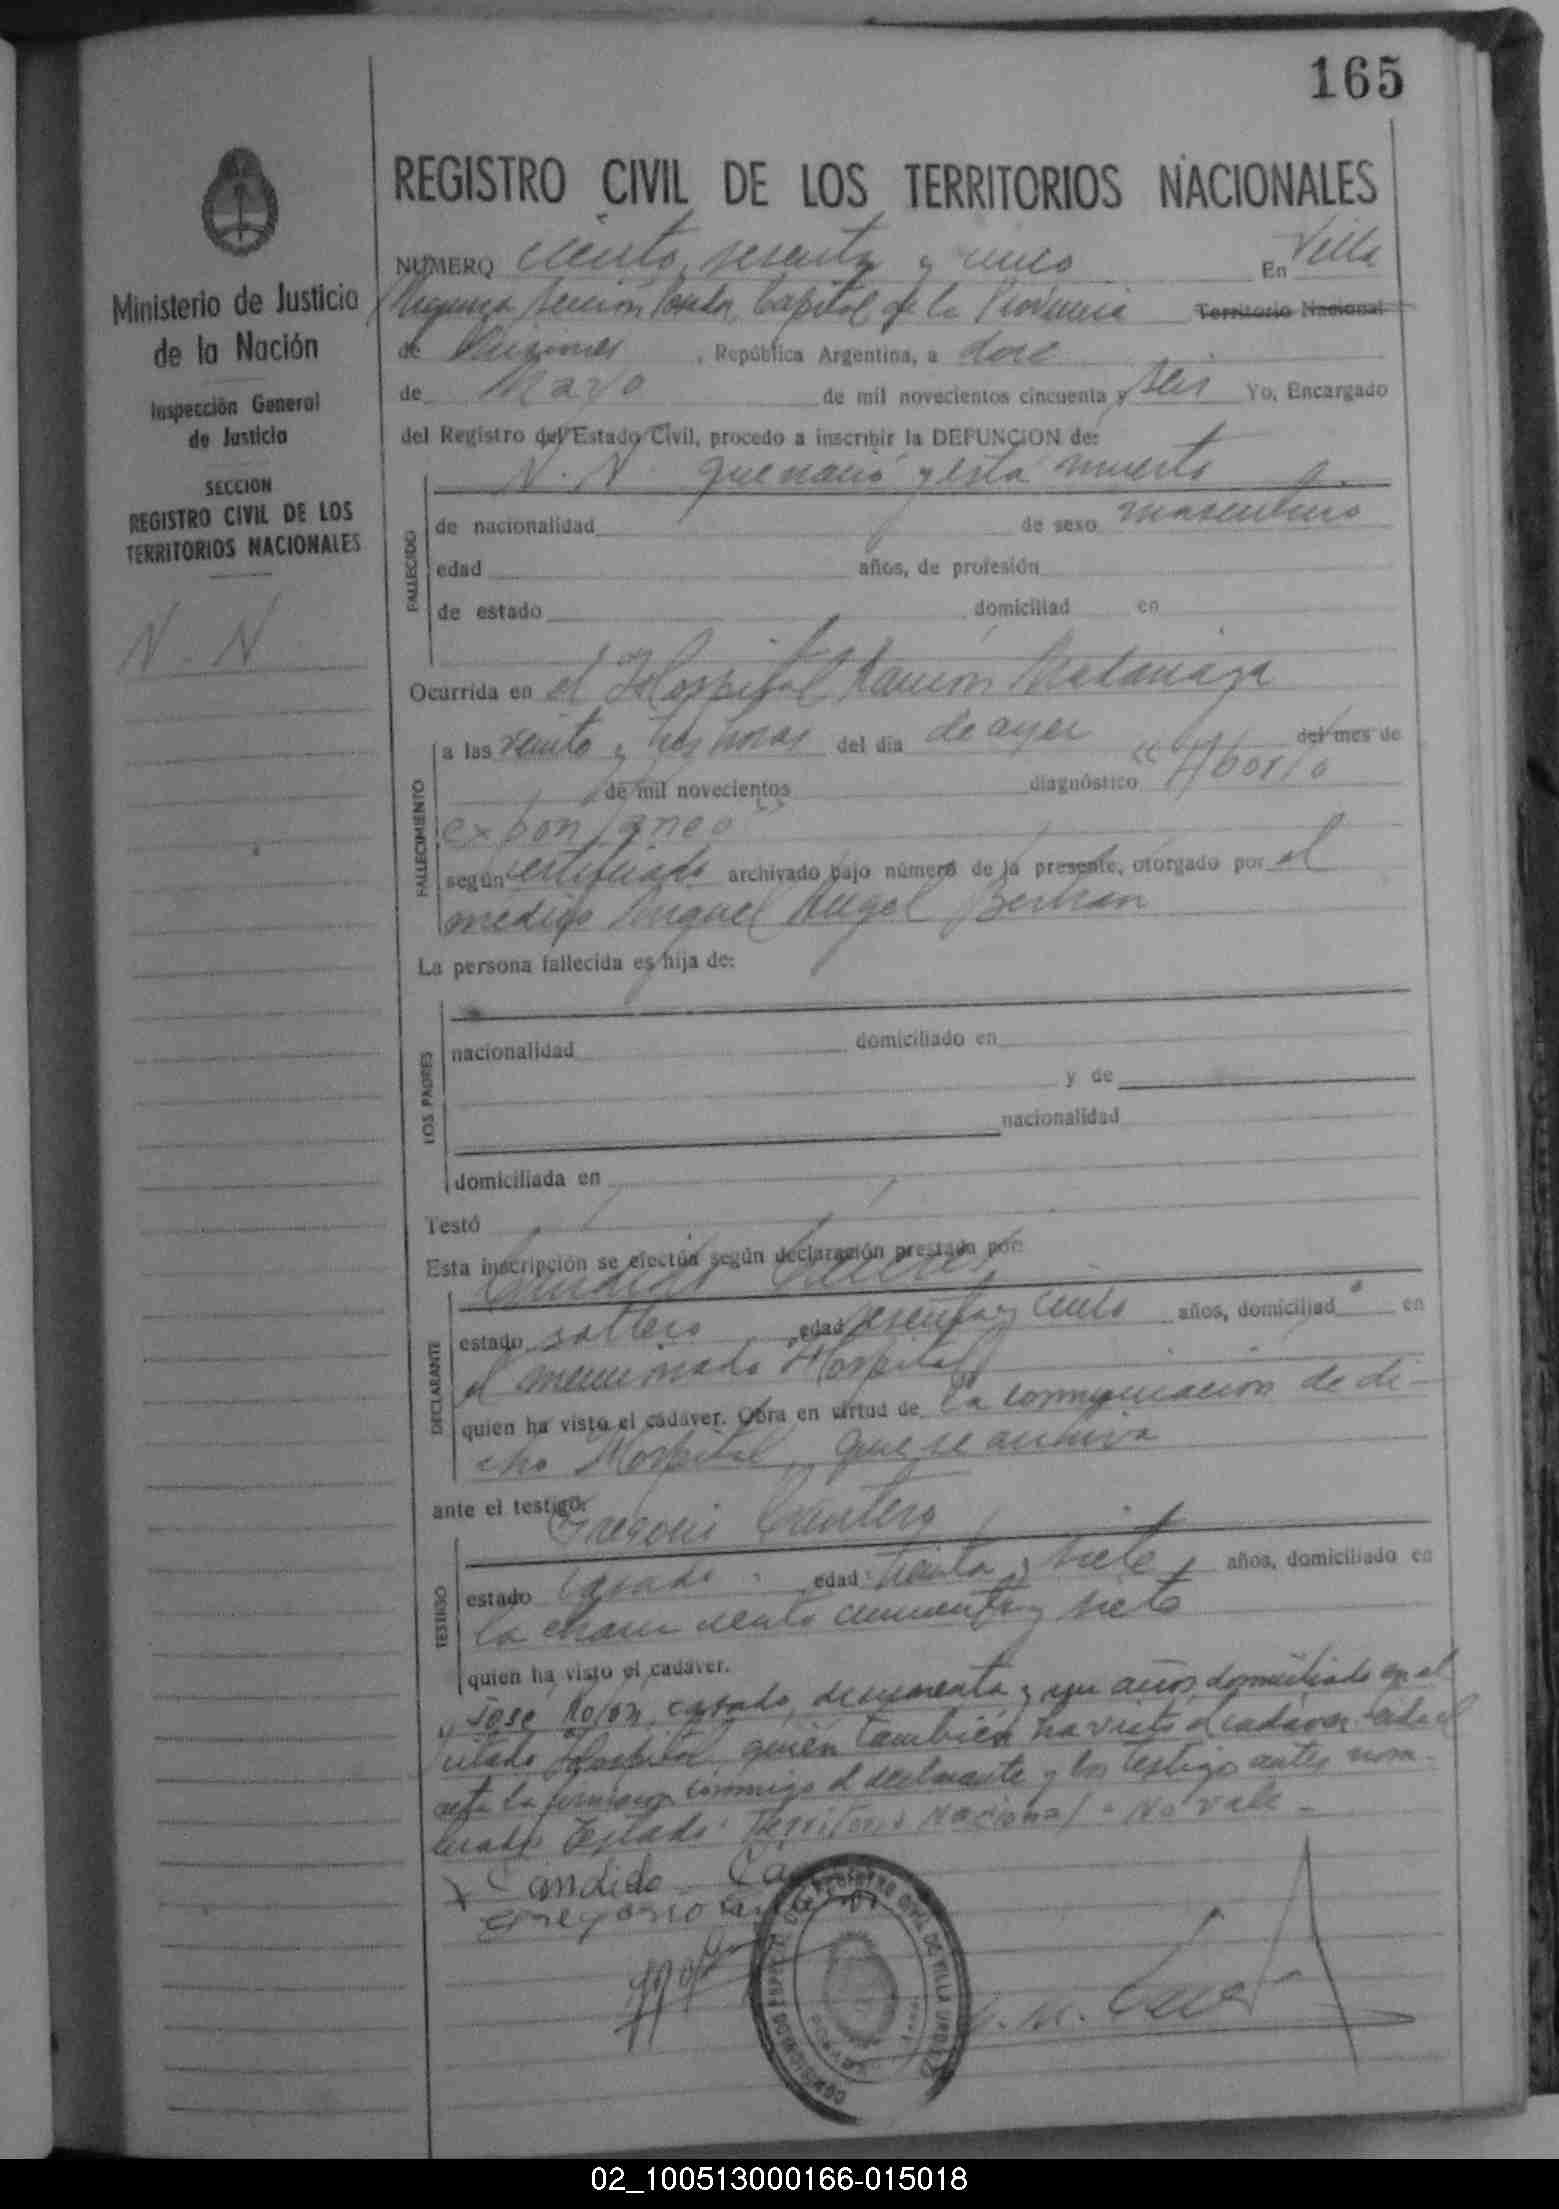 165
REGISTRO CIVIL DE LOS TERRITORIOS NACIONALES
Ministerio de Justicia
de la Nación
Inspección General
de Justicia
SECCION
REGISTRO CIVIL DE LOS
TERRITORIOS NACIONALES
N. N
NUMERO ciento sesenta y cinco En Villa
Capital de la Provincia Territorio Nacional
de Misiones, República Argentina, a doce
de Mayo de mil novecientos cincuenta y seis Yo, Encargado
del Registro del Estado Civil, procedo a inscribir la DEFUNCION de:
N. N que nació y está muerto
FALLECIDO
de nacionalidad de sexo masculino
edad años, de profesión
de estado domiciliad en
Ocurrida en el Hospital Ramón Madariaga
FALLECIMIENTO
a las veinte y tres horas del día de ayer del mes de
de mil novecientos diagnóstico "Aborto
expontaneo"
según certificado archivado bajo número de la presente, otorgado por el
médico Miguel Angel Bertran
La persona fallecida es hija de:
LOS PADRES
nacionalidad domiciliado en
y de
nacionalidad
domiciliada en
Testó
Esta inscripción se efectúa según declaración prestada por:
Candido
DECLARANTE
estado soltero edad sesenta y años, domiciliado en
el mencionado Hospital
quien ha visto el cadáver. Obra en virtud de la comunicación de di-
cho Hospital, que se archiva
ante el testigo:
Gregorio
TESTIGO
estado casado edad treinta y siete, años, domiciliado en
la chacra ciento cincuenta y siete
quien ha visto el cadáver.
y José casado, años domiciliado en el
citado Hospital, quién también ha visto el cadáver. Leida el
acta la firmaron conmigo el declarante y los testigo antes nom-
brados Testado: Territorio Nacional - No vale -
Candido
Gregorio
02_100513000166-015018